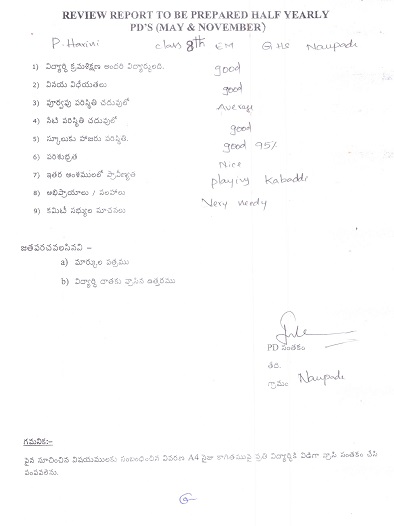 REVIEW REPORT TO BE PREPARED HALF YEARLY
PD'S (MAY & NOVEMBER)
P. Harini class 8th EM G.H.S Naupada
1) విద్యార్థి క్రమశిక్షణ అందరి విద్యార్థులది. good
2) వినయ విధేయతలు good
3) పూర్వపు పరిస్థితి చదువులో Average
4) నేటి పరిస్థితి చదువులో good
5) స్కూలుకు హాజరు పరిస్థితి. good 95%
6) పరిశుభ్రత Nice
7) ఇతర అంశములలో ప్రావీణ్యత playing Kabaddi
8) అభిప్రాయాలు / సలహాలు Very needy
9) కమిటీ సభ్యుల సూచనలు
జతపరచవలసినవి –
a) మార్కుల పత్రము
b) విద్యార్థి దాతకు వ్రాసిన ఉత్తరము
PD సంతకం
తేది.
గ్రామం Naupada
గమనిక:-
పైన సూచించిన విషయములకు సంబంధించిన వివరణ A4 సైజు కాగితముపై ప్రతి విద్యార్థికి విడిగా వ్రాసి సంతకం చేసి
పంపవలెను.